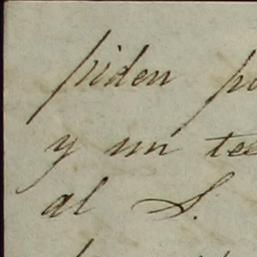 piden po
y un te
al S.